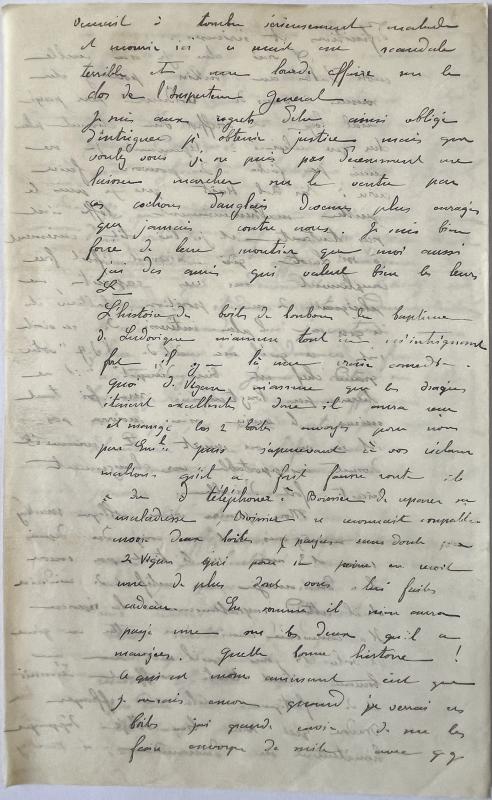 venait à tomber sérieusement malade
et mourir ici ce serait un scandale
terrible et une lourde affaire sur le
dos de l'Inspecteur Général
Je suis aux regrets d'être ainsi obligé
d'intriguer pr obtenir justice mais que
voulez vous je ne puis pas décemment me
laisser marcher sur le ventre par
ces cochons d'anglais désormais plus enragés
que jamais contre nous. Je suis bien
forcé de leur montrer que moi aussi
j'ai des amis qui valent bien les leurs
L'histoire des boîtes de bonbons du baptême
de Ludovique m'amuse tout en m'intriguant
fort il y a là une vraie comédie.
Quoi de Vigan m'assure que les dragées
étaient excellentes donc il aura reçu
et mangé les 2 boîtes envoyées pour nous
par puis s'apercevant à vos réclamations
qu'il a fait fausse route il
a dû téléphoner à Boissier de réparer sa
maladresse, Boissier se reconnait coupable
envoie deux boîtes (payées sans doute par
de Vigan) qui pour sa peine en reçoit
une de plus dont vous lui faites
cadeau. En somme il n'en aura
payé une sur les deux qu'il a
mangées. Quelle bonne histoire !
Ce qui est moins amusant c'est que
je ne sais encore quand je verrai ces
boîtes j'ai grande envie de me les
faire envoyer de suite avec qq